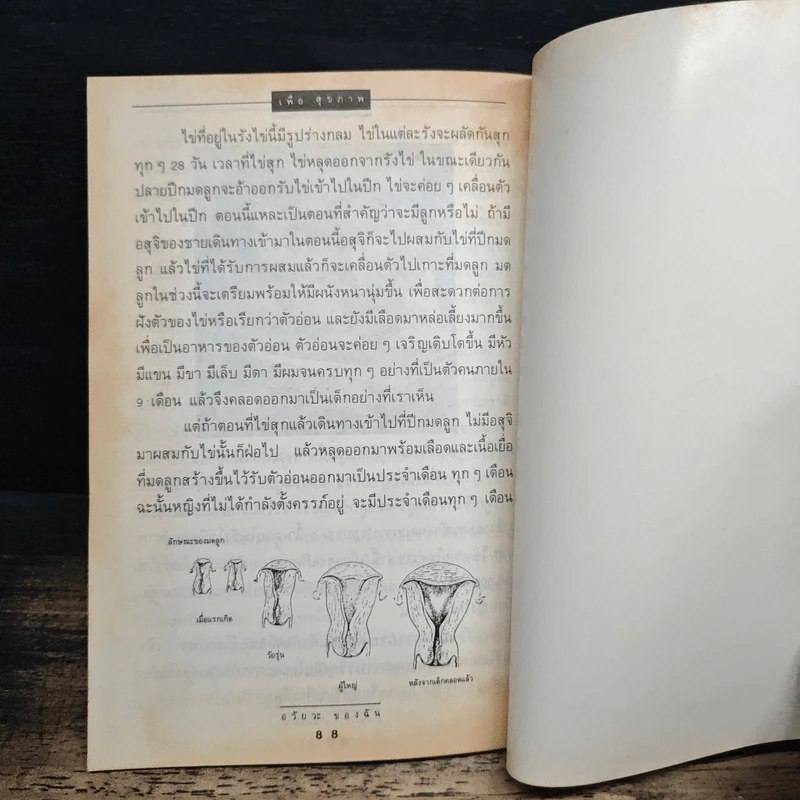 เพื่อ สุขภาพ
ไข่ที่อยู่ในรังไข่นี้มีรูปร่างกลม ไข่ในแต่ละรังจะผลัดกันสุก
ทุก ๆ 28 วัน เวลาที่ไข่สุก ไข่หลุดออกจากรังไข่ ในขณะเดียวกัน
ปลายปีกมดลูกจะอ้าออกรับไข่เข้าไปในปีก ไข่จะค่อย ๆ เคลื่อนตัว
เข้าไปในปีก ตอนนี้แหละเป็นตอนที่สำคัญว่าจะมีลูกหรือไม่ ถ้ามี
อสุจิของชายเดินทางเข้ามาในตอนนี้อสุจิก็จะไปผสมกับไข่ที่ปีกมด
ลูก แล้วไข่ที่ได้รับการผสมแล้วก็จะเคลื่อนตัวไปเกาะที่มดลูก มด
ลูกในช่วงนี้จะเตรียมพร้อมให้มีผนังหนานุ่มขึ้น เพื่อสะดวกต่อการ
ฝังตัวของไข่หรือเรียกว่าตัวอ่อน และยังมีเลือดมาหล่อเลี้ยงมากขึ้น
เพื่อเป็นอาหารของตัวอ่อน ตัวอ่อนจะค่อย ๆ เจริญเติบโตขึ้น มีหัว
มีแขน มีขา มีเล็บ มีตา มีผมจนครบทุก ๆ อย่างที่เป็นตัวคนภายใน
9 เดือน แล้วจึงคลอดออกมาเป็นเด็กอย่างที่เราเห็น
แต่ถ้าตอนที่ไข่สุกแล้วเดินทางเข้าไปที่ปีกมดลูก ไม่มีอสุจิ
มาผสมกับไข่นั้นก็ฝ่อไป แล้วหลุดออกมาพร้อมเลือดและเนื้อเยื่อ
ที่มดลูกสร้างขึ้นไว้รับตัวอ่อนออกมาเป็นประจำเดือน ทุก ๆ เดือน
ฉะนั้นหญิงที่ไม่ได้กำลังตั้งครรภ์อยู่ จะมีประจำเดือนทุก ๆ เดือน
ลักษณะของมดลูก
เมื่อแรกเกิด
วัยรุ่น
ผู้ใหญ่
หลังจากเด็กคลอดแล้ว
อวัยวะ ของฉัน
88